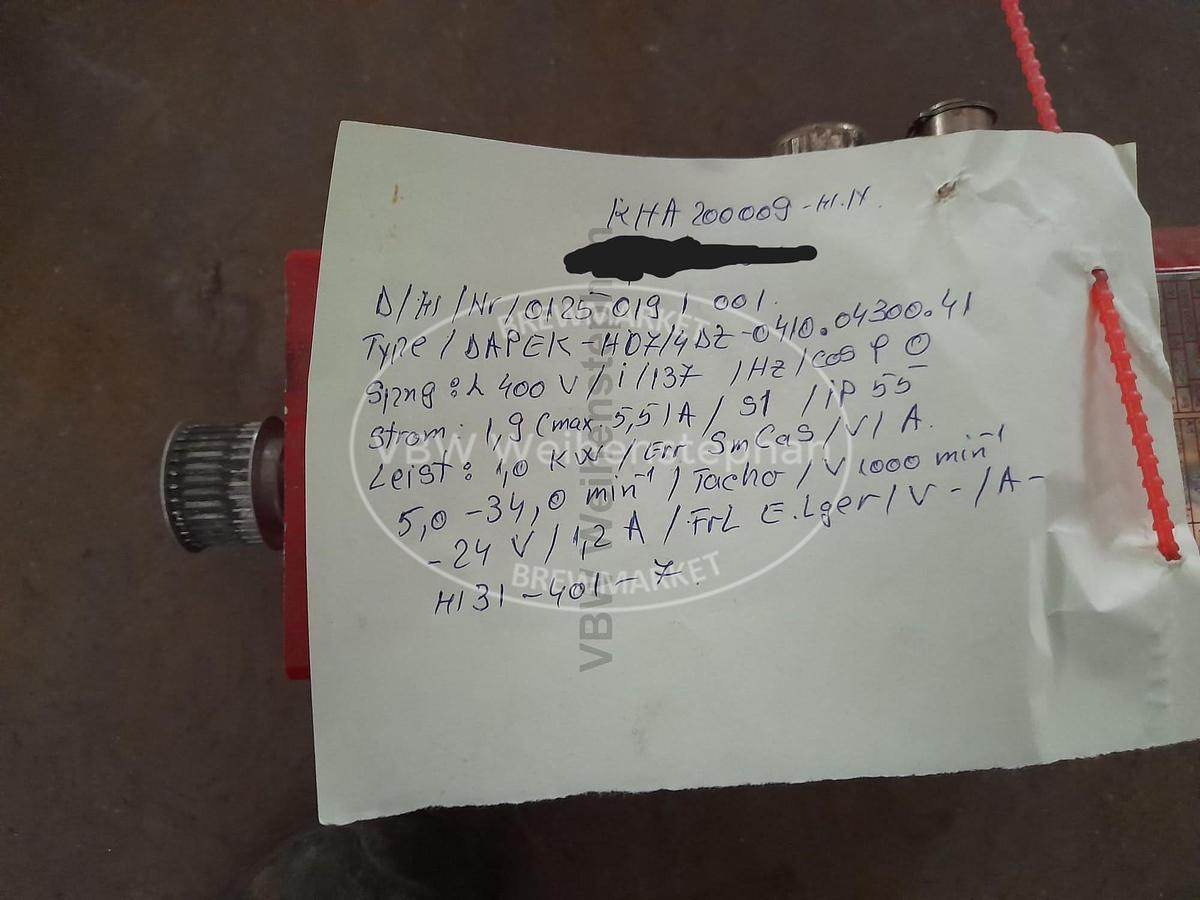 KHA 200009 - HI.IV.
D/HI/Nr/0125-019 / 001.
Type / DAPEK - HD7/4DZ-0410.04300.41
Spng : λ 400 V / i /137 / Hz / cos φ 0
Strom : 1,9 (max. 5,5) A / S1 / iP 55
Leist : 1,0 KW / Err SmCaS / V / A.
5,0 - 34,0 min⁻¹ / Tacho / V 1000 min⁻¹
- 24 V / 1,2 A / FrL E.Lger / V - / A -
HI 31 - 401 - 7.
BREWMARKET
VBW Weihenstephan
BREWMARKET
VBW Weihenstephan